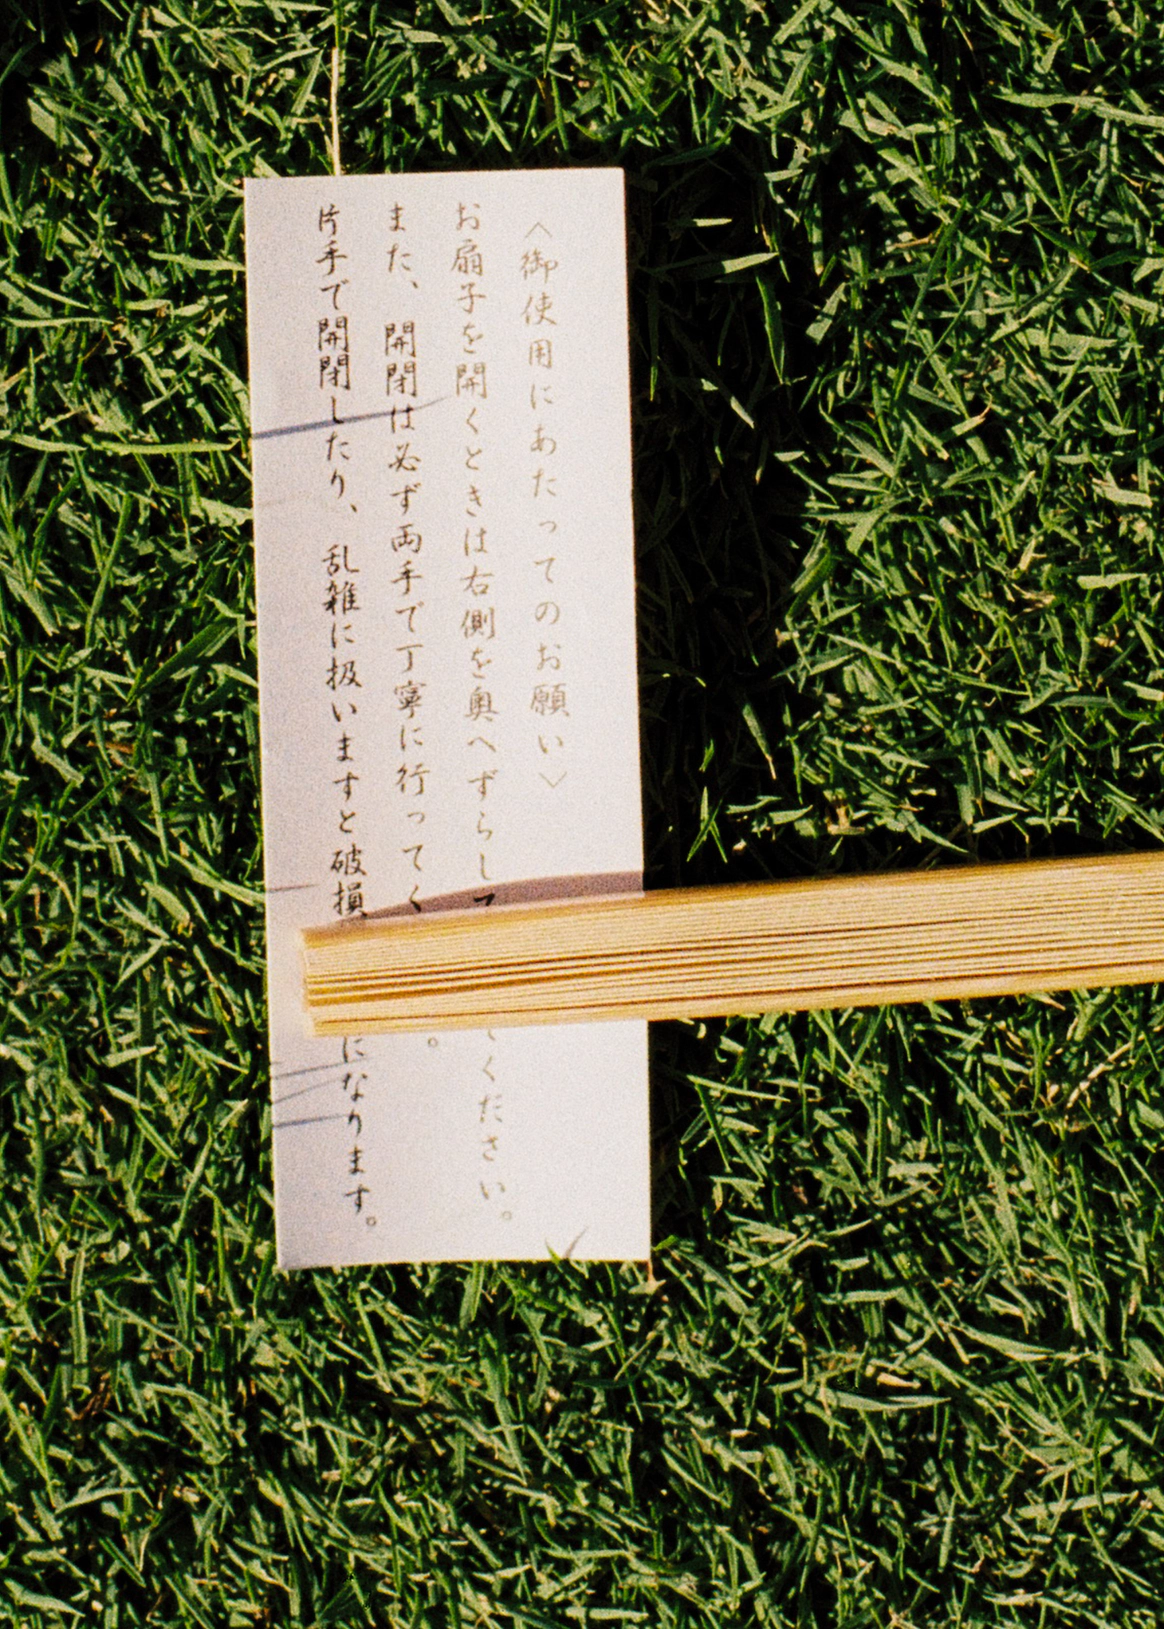 〈御使用にあたってのお願い〉
お扇子を開くときは右側を奥へずらして てください。
また、開閉は必ず両手で丁寧に行ってく 。
片手で開閉したり、乱雑に扱いますと破損 になります。